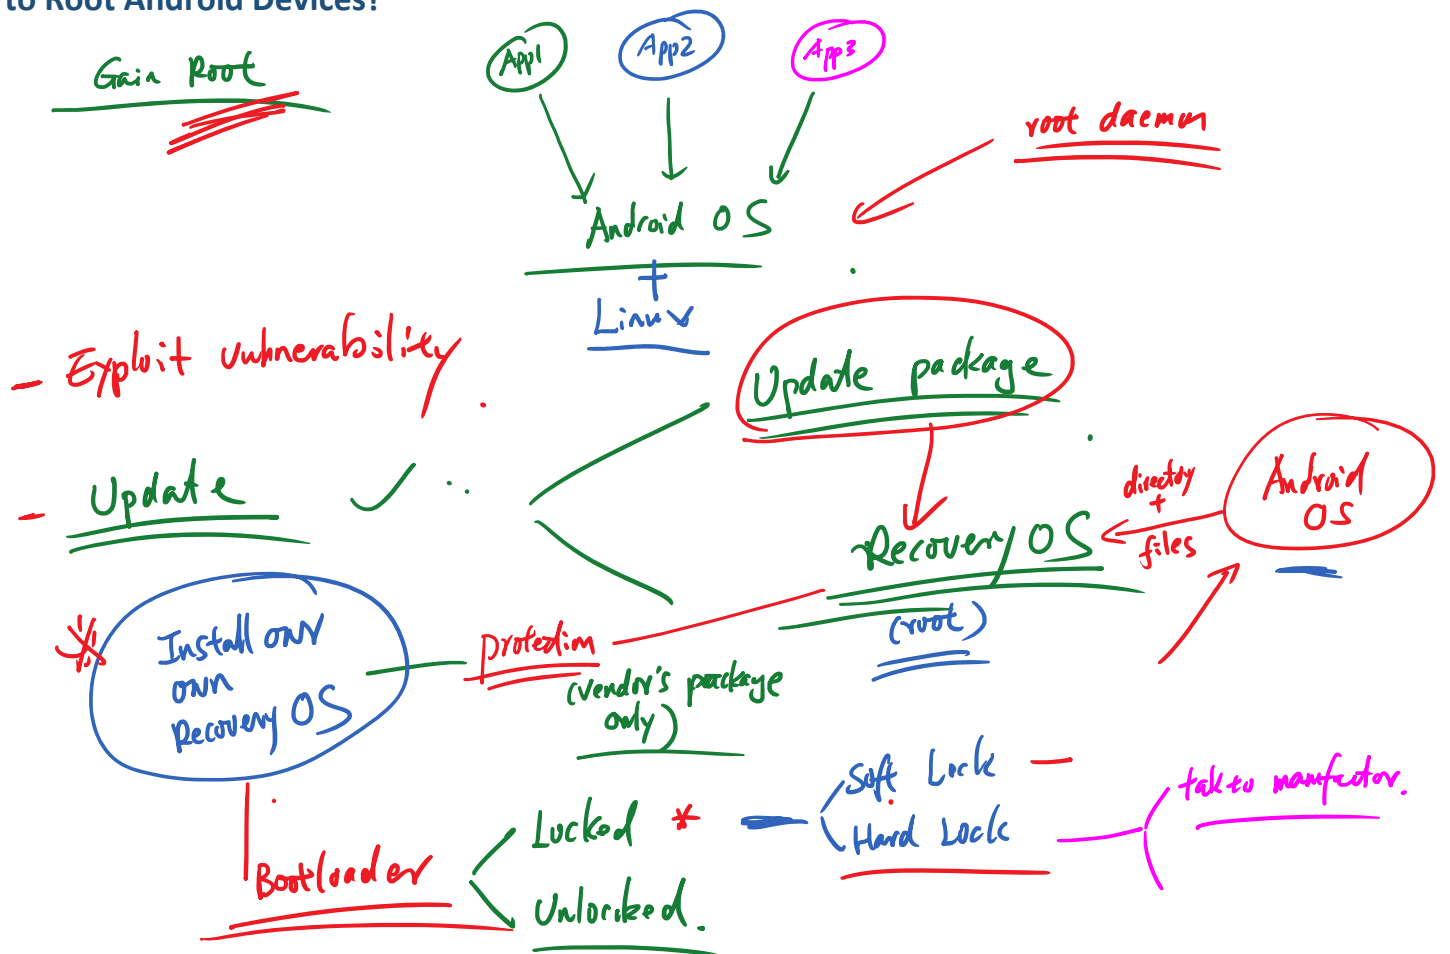 to Root Android Devices?
Gain Root
App1
App2
App3
root daemon
Android OS
+
Linux
- Exploit vulnerability
Update package
- Update
directory
+
files
Android
OS
Recovery OS
(root)
Install own
own
Recovery OS
protection
(vendor's package
only)
Soft Lock
Hard Lock
talk to manfactor.
Locked *
Unlocked.
Bootloader